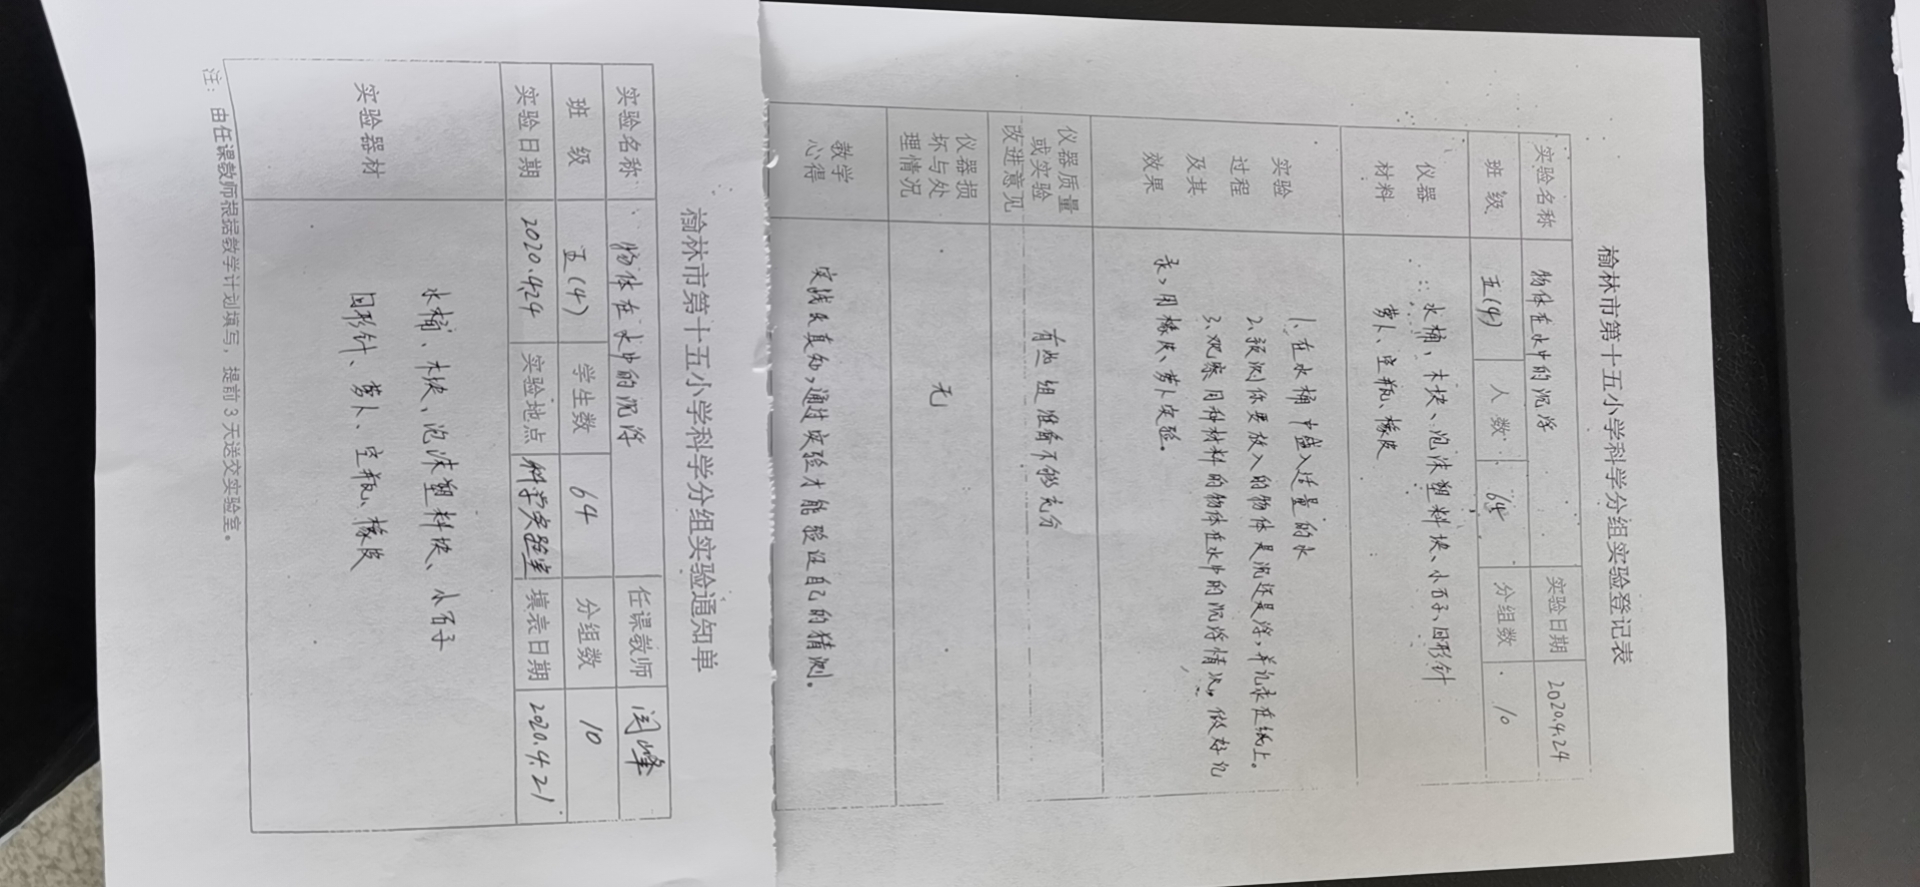 榆林市第十五小学科学分组实验登记表
实验名称 物体在水中的沉浮 实验日期 2020.4.24
班 级 五(4) 人 数 64 分组数 10
仪器 材料 水桶、木块、泡沫塑料块、小石子、回形针
萝卜、空瓶、橡皮
实验 过程 及其 效果 1、在水桶中盛入适量的水
2、预测你要放入的物体是沉还是浮，并记录在纸上。
3、观察同种材料的物体在水中的沉浮情况，做好记
录，用橡皮、萝卜实验。
仪器质量 或实验 改进意见 有些组准备不够充分
仪器损 坏与处 理情况 无
教学 心得 实践出真知，通过实验才能验证自己的猜测。
榆林市第十五小学科学分组实验通知单
实验名称 物体在水中的沉浮 任课教师 闫峰
班 级 五(4) 学生数 64 分组数 10
实验日期 2020.4.24 实验地点 科学实验室 填表日期 2020.4.21
实验器材 水桶、木块、泡沫塑料块、小石子
回形针、萝卜、空瓶、橡皮
注：由任课教师根据教学计划填写，提前 3 天送交实验室。